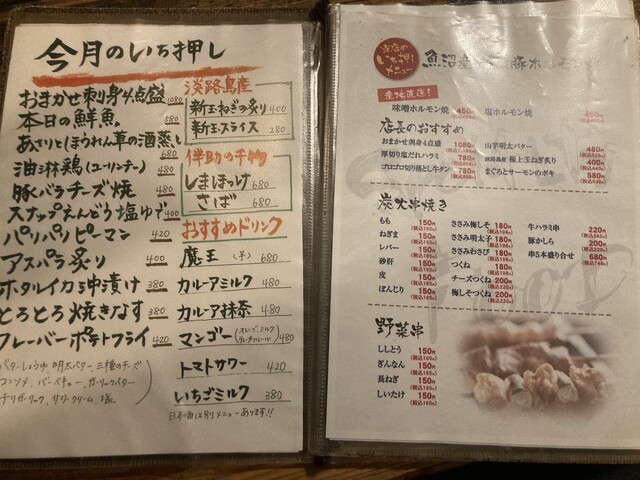 今月のいち押し
おまかせ刺身4点盛 1080
本日の鮮魚
あさりとほうれん草の酒蒸し 680
油淋鶏(ユーリンチー) 480
豚バラチーズ焼 480
スナップえんどう塩ゆで 400
パリパリピーマン 420
アスパラ炙り 400
ホタルイカ沖漬け 380
とろとろ焼きなす 380
フレーバーポテトフライ 420
バターしょうゆ 明太バター、三種のチーズ
コンソメ、バーベキュー、ガーリックバター
チリガーリック、サワークリーム、塩
淡路島産
新玉ねぎの炙り 400
新玉スライス 280
伴助の干物
しまほっけ 680
さば 680
おすすめドリンク
魔王 (芋) 680
カルーアミルク 480
カルーア抹茶 480
マンゴー 480
トマトサワー 420
いちごミルク 380
日本酒は別メニューあります!!
当店の
いち押し
メニュー
魚沼産
豚ホルモン
産地直送!
味噌ホルモン焼 450円
塩ホルモン焼 450円
店長のおすすめ
おまかせ刺身4点盛 1080円
厚切り塩だれハラミ 780円
ゴロゴロ切り落とし牛タン 780円
山芋明太バター 480円
淡路島産 極上玉ねぎ炙り 400円
まぐろとサーモンのポキ 580円
炭火串焼き
もも 150円
ねぎま 150円
レバー 150円
砂肝 150円
皮 150円
ぼんじり 150円
ささみ梅しそ 180円
ささみ明太子 180円
ささみわさび 180円
つくね 180円
チーズつくね 200円
梅しそつくね 200円
牛ハラミ串 220円
豚かしら 200円
串5本盛り合せ 680円
野菜串
ししとう 150円
ぎんなん 150円
長ねぎ 150円
しいたけ 150円